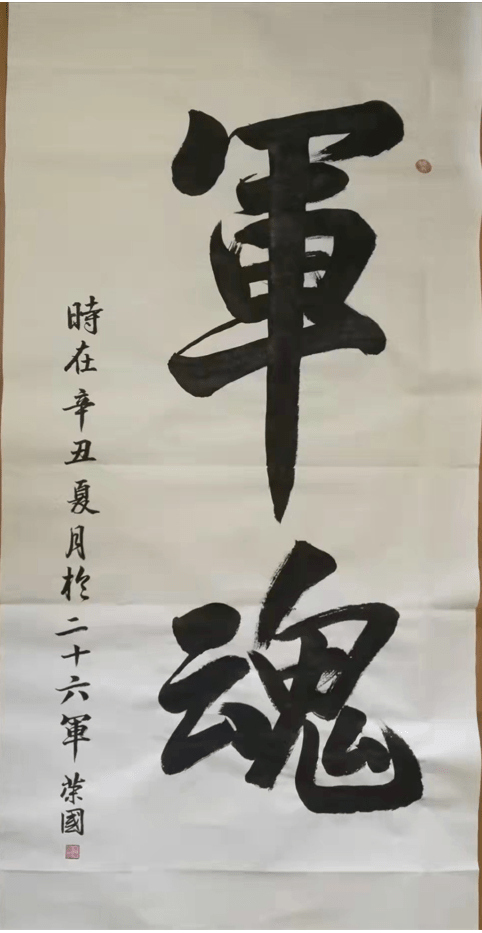 軍魂
時在辛丑夏月於二十六軍 荣國